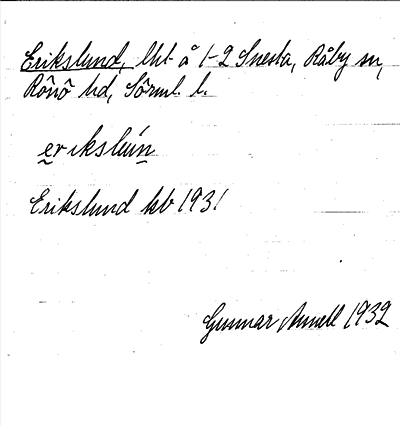 Erikslund, lht å 1-2 Snesta, Råby sn,
Rönö hd, Sörml. l.
erikslun
Erikslund kb 1931
Gunnar Annell 1932